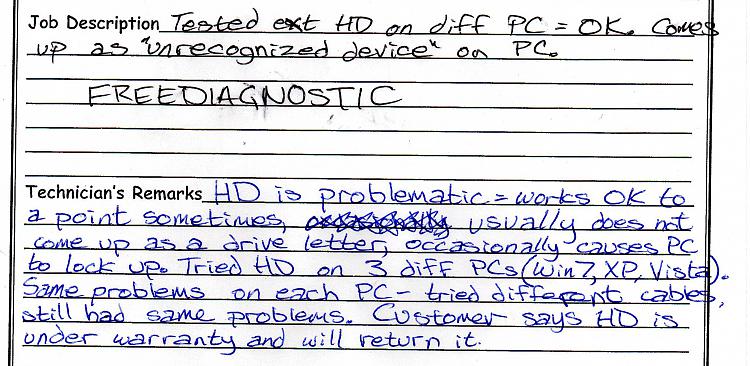 Job Description Tested ext HD on diff PC = OK. Comes
up as "unrecognized device" on PC.
FREE DIAGNOSTIC
Technician's Remarks HD is problematic = works OK to
a point sometimes, usually does not
come up as a drive letter, occasionally causes PC
to lock up. Tried HD on 3 diff PCs (Win7, XP, Vista).
Same problems on each PC - tried different cables,
still had same problems. Customer says HD is
under warranty and will return it.